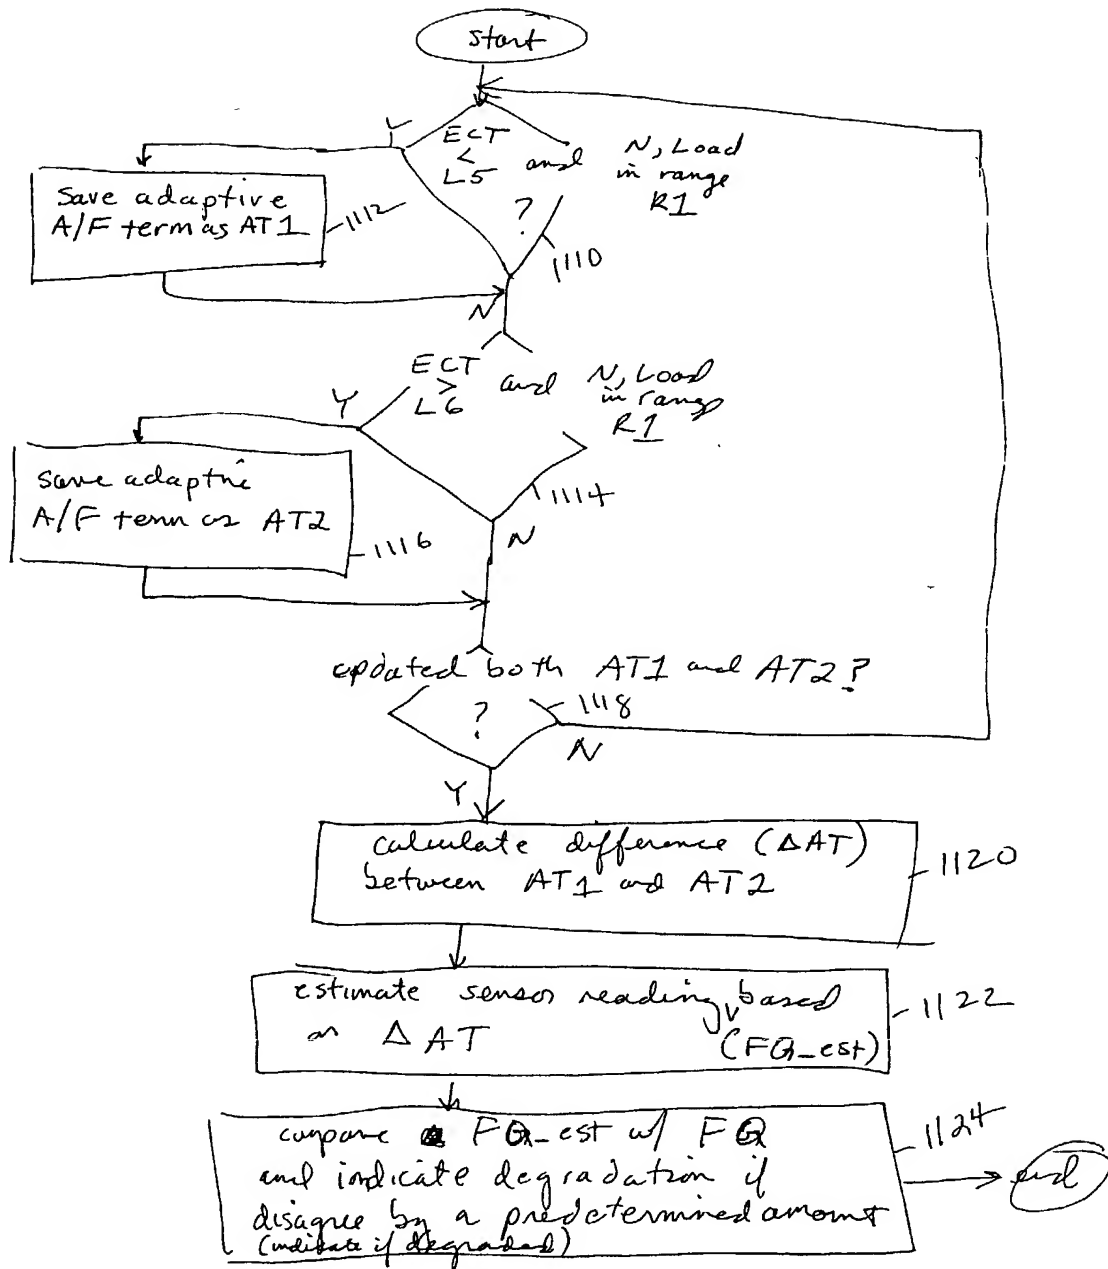 start
Y
ECT
<
L5 and N, Load
in range
R1
?
1110
save adaptive
A/F term as AT1
1112
N
ECT
>
L6 and N, Load
in range
R1
Y
1114
save adaptive
A/F term as AT2
1116
N
updated both AT1 and AT2?
?
1118
N
Y
calculate difference (ΔAT)
between AT1 and AT2
1120
estimate sensor reading based
(FQ_est)
on ΔAT
1122
compare FQ_est w/ FQ
and indicate degradation if
disagree by a predetermined amount
(indicate if degraded)
1124
end